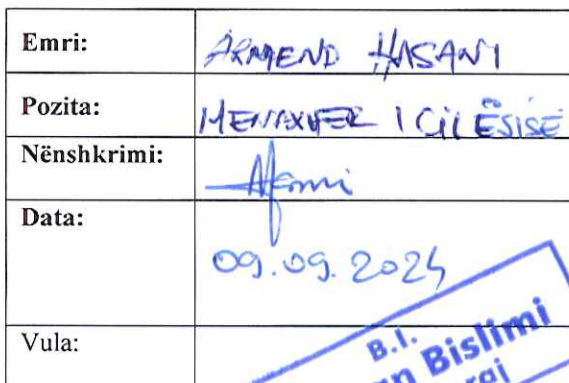 Emri: ARMEND HASANI
Pozita: MENAXHER I CILËSISË
Nënshkrimi:
Data: 09.09.2024
Vula:
B.I.
Bislimi